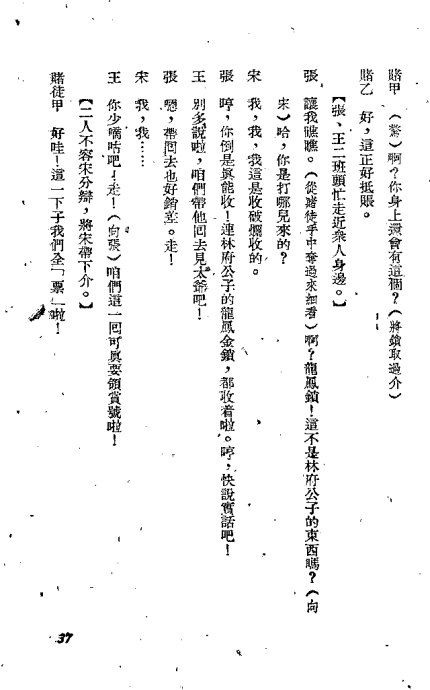 賭甲　（驚）啊？你身上還會有這個？（將鎖取過介）
賭乙　好，這正好抵賬。
【張、王二班頭忙走近衆人身邊。】
張　讓我瞧瞧。（從賭徒手中奪過來細看）啊？龍鳳鎖！這不是林府公子的東西嗎？（向
宋）哈，你是打哪兒來的？
宋　我，我，我這是收破爛收的。
張　哼，你倒是眞能收！連林府公子的龍鳳金鎖，都收着啦。哼，快說實話吧！
王　別多說啦，咱們帶他回去見太爺吧！
張　嗯，帶回去也好銷差。走！
宋　我，我……
王　你少嘀咕吧！走！（向張）咱們這一回可眞要領賞號啦！
【二人不容宋分辯，將宋帶下介。】
賭徒甲　好哇！這一下子我們全「票」啦！
37